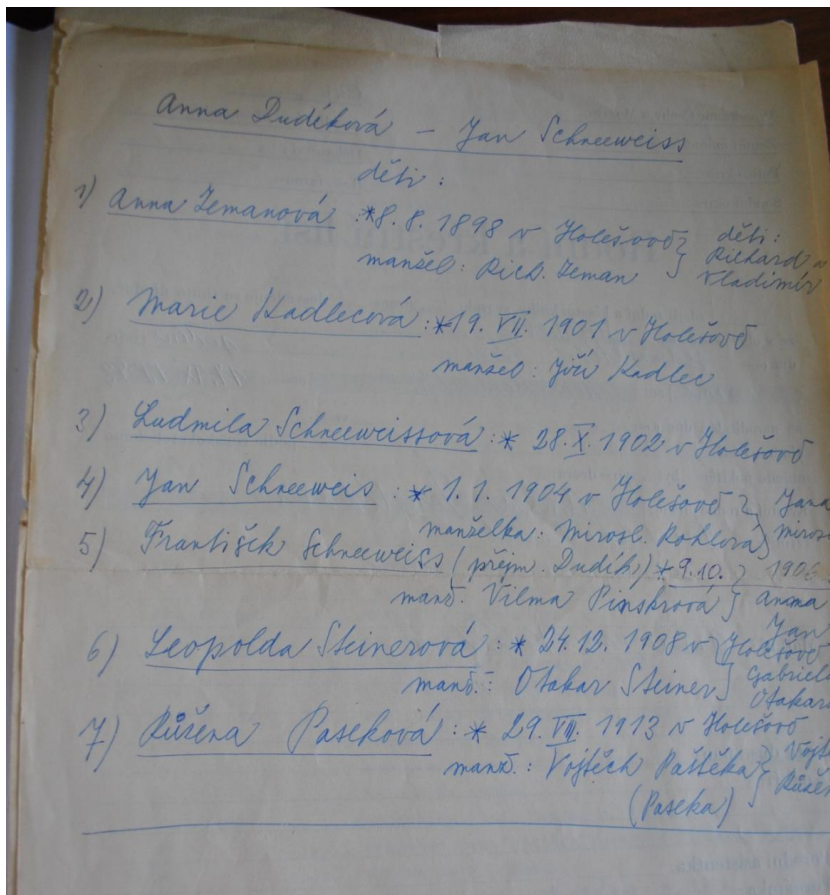 Anna Dudíková – Jan Schneeweiss
děti :
1) Anna Zemanová : *8. 8. 1898 v Holešově } děti :
manžel : Rich. Zeman } Richard a
Vladimír
2) Marie Kadlecová : *19. VII. 1901 v Holešově
manžel : Jiří Kadlec
3) Ludmila Schneeweissová : * 28. X. 1902 v Holešově
4) Jan Schneeweis : * 1. 1. 1904 v Holešově } Jana
manželka : Mirosl. Rohlová } Miros
5) František Schneeweiss (přejm. Dudík) * 9.10. 1906
manž. Vilma Pinskrová } Anna
Jan
6) Leopolda Steinerová : * 24. 12. 1908 v Holešově
manž. : Otakar Steiner } Gabriela
Otakar
7) Růžena Paseková : * 29. VIII. 1913 v Holešově
manž. : Vojtěch Paštěka } Vojt
(Paseka) } Růže